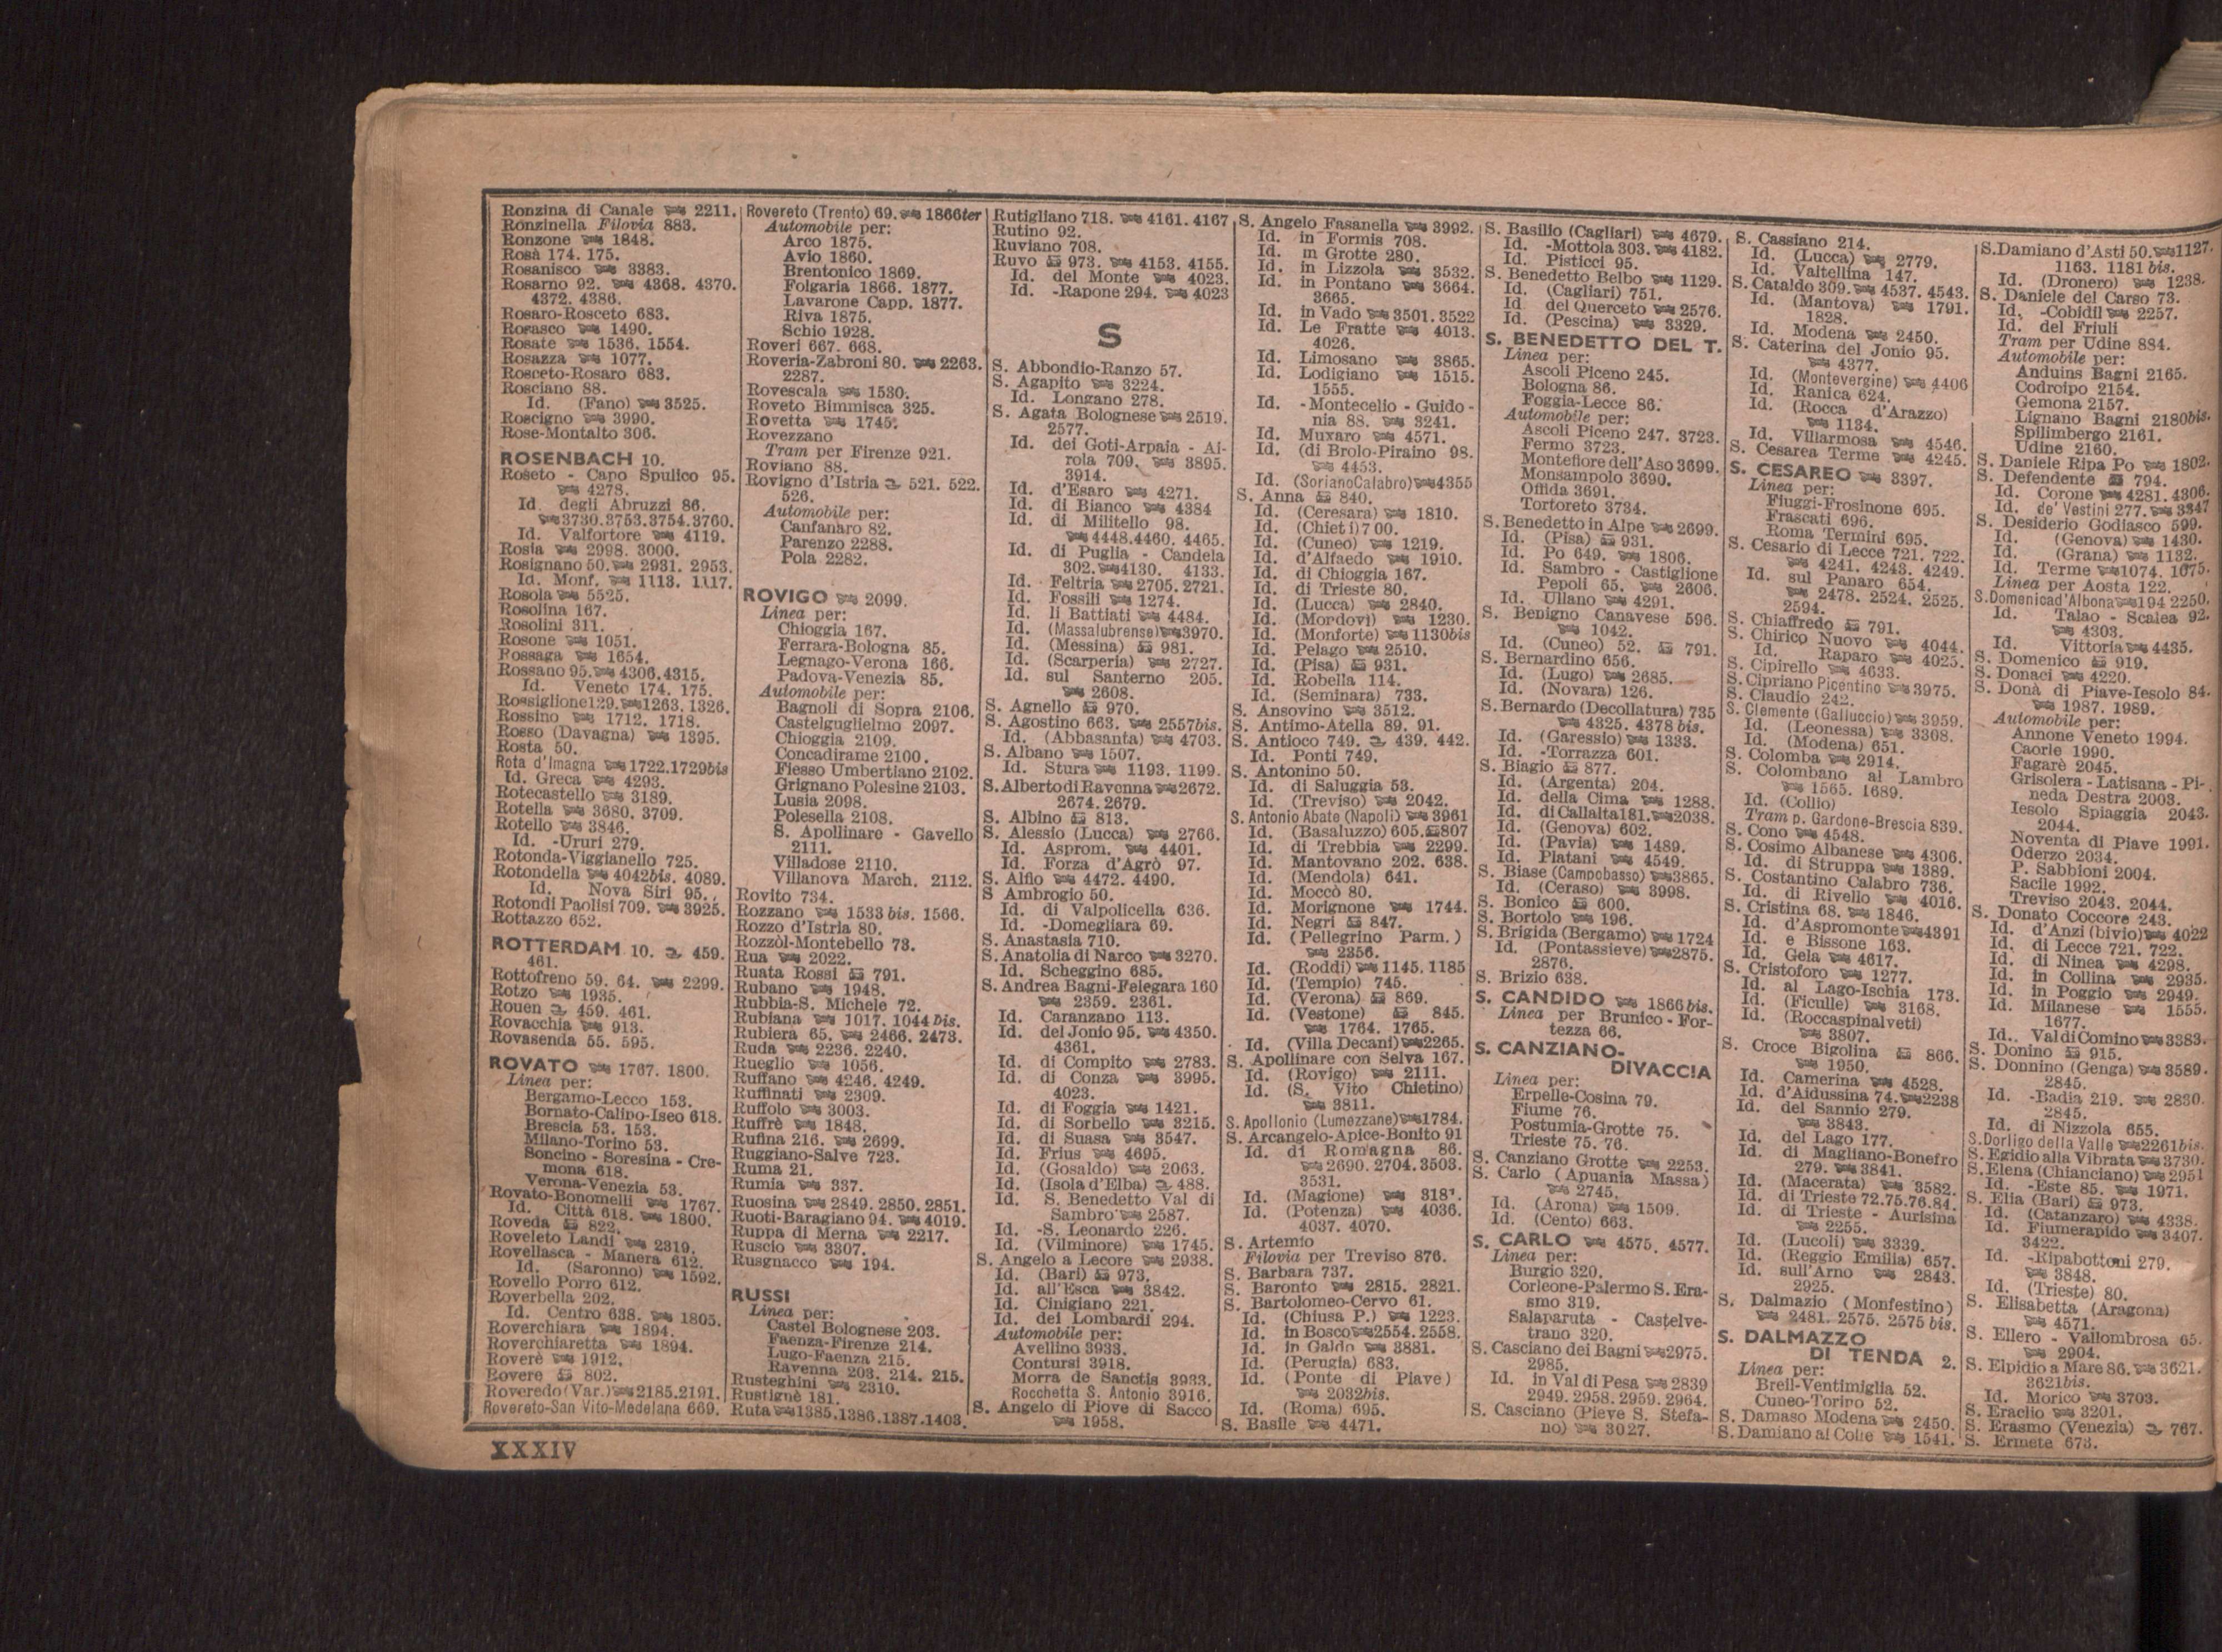 Ronzina di Canale 2211.
Ronzinella Filovia 883.
Ronzone 1848.
Rosà 174. 175.
Rosanisco 3383.
Rosarno 92. 4368. 4370.
4372. 4386.
Rosaro-Rosceto 683.
Rosasco 1490.
Rosate 1536. 1554.
Rosazza 1077.
Rosceto-Rosaro 683.
Rosciano 88.
Id. (Fano) 3525.
Roscigno 3990.
Rose-Montalto 306.
ROSENBACH 10.
Roseto - Capo Spulico 95.
4278.
Id. degli Abruzzi 86.
3730.3753.3754.3760.
Id. Valfortore 4119.
Rosia 2998. 3000.
Rosignano 50. 2931. 2953.
Id. Monf. 1113. 1117.
Rosola 5525.
Rosolina 167.
Rosolini 311.
Rosone 1051.
Rossaga 1654.
Rossano 95. 4306.4315.
Id. Veneto 174. 175.
Rossiglione 129. 1263. 1326.
Rossino 1712. 1718.
Rosso (Davagna) 1395.
Rosta 50.
Rota d'Imagna 1722.1729bis
Id. Greca 4293.
Rotecastello 3189.
Rotella 3680. 3709.
Rotello 3846.
Id. -Ururi 279.
Rotonda-Viggianello 725.
Rotondella 4042bis. 4089.
Id. Nova Siri 95.
Rotondi Paolisi 709. 3925.
Rottazzo 652.
ROTTERDAM 10. 459.
461.
Rottofreno 59. 64. 2299.
Rotzo 1935.
Rouen 459. 461.
Rovacchia 913.
Rovasenda 55. 595.
ROVATO 1767. 1800.
Linea per:
Bergamo-Lecco 153.
Bornato-Calino-Iseo 618.
Brescia 53. 153.
Milano-Torino 53.
Soncino - Soresina - Cre-
mona 618.
Verona-Venezia 53.
Rovato-Bonomelli 1767.
Id. Città 618. 1800.
Roveda 822.
Roveleto Landi 2319.
Rovellasca - Manera 612.
Id. (Saronno) 1592.
Rovello Porro 612.
Roverbella 202.
Id. Centro 638. 1805.
Roverchiara 1894.
Roverchiaretta 1894.
Roverè 1912.
Rovere 802.
Roveredo (Var.) 2185.2191.
Rovereto-San Vito-Medelana 669.
Rovereto (Trento) 69. 1866ter
Automobile per:
Arco 1875.
Avio 1860.
Brentonico 1869.
Folgaria 1866. 1877.
Lavarone Capp. 1877.
Riva 1875.
Schio 1928.
Roveri 667. 668.
Roveria-Zabroni 80. 2263.
2287.
Rovescala 1530.
Roveto Bimmisca 325.
Rovetta 1745.
Rovezzano
Tram per Firenze 921.
Roviano 88.
Rovigno d'Istria 521. 522.
526.
Automobile per:
Canfanaro 82.
Parenzo 2288.
Pola 2282.
ROVIGO 2099.
Linea per:
Chioggia 167.
Ferrara-Bologna 85.
Legnago-Verona 166.
Padova-Venezia 85.
Automobile per:
Bagnoli di Sopra 2106.
Castelguglielmo 2097.
Chioggia 2109.
Concadirame 2100.
Fiesso Umbertiano 2102.
Grignano Polesine 2103.
Lusia 2098.
Polesella 2108.
S. Apollinare - Gavello
2111.
Villadose 2110.
Villanova March. 2112.
Rovito 734.
Rozzano 1533 bis. 1566.
Rozzo d'Istria 80.
Rozzòl-Montebello 73.
Rua 2022.
Ruata Rossi 791.
Rubano 1948.
Rubbia-S. Michele 72.
Rubiana 1017. 1044 bis.
Rubiera 65. 2466. 2473.
Ruda 2236. 2240.
Rueglio 1056.
Ruffano 4246. 4249.
Ruffinati 2309.
Ruffolo 3003.
Ruffrè 1848.
Rufina 216. 2699.
Ruggiano-Salve 723.
Ruma 21.
Rumia 337.
Ruosina 2849. 2850. 2851.
Ruoti-Baragiano 94. 4019.
Ruppa di Merna 2217.
Ruscio 3307.
Rusgnacco 194.
RUSSI
Linea per:
Castel Bolognese 203.
Faenza-Firenze 214.
Lugo-Faenza 215.
Ravenna 203. 214. 215.
Rusteghini 2310.
Rustignè 181.
Ruta 1385.1386.1387.1403.
Rutigliano 718. 4161. 4167
Rutino 92.
Ruviano 708.
Ruvo 973. 4153. 4155.
Id. del Monte 4023.
Id. -Rapone 294. 4023
S
S. Abbondio-Ranzo 57.
S. Agapito 3224.
Id. Longano 278.
S. Agata Bolognese 2519.
2577.
Id. dei Goti-Arpaia - Ai-
rola 709. 3895.
3914.
Id. d'Esaro 4271.
Id. di Bianco 4384
Id. di Militello 98.
4448.4460. 4465.
Id. di Puglia - Candela
302. 4130. 4133.
Id. Feltria 2705. 2721.
Id. Fossili 1274.
Id. li Battiati 4484.
Id. (Massalubrense) 3970.
Id. (Messina) 981.
Id. (Scarperia) 2727.
Id. sul Santerno 205.
2608.
S. Agnello 970.
S. Agostino 663. 2557bis.
Id. (Abbasanta) 4703.
S. Albano 1507.
Id. Stura 1193. 1199.
S. Alberto di Ravenna 2672.
2674. 2679.
S. Albino 813.
S. Alessio (Lucca) 2766.
Id. Asprom. 4401.
Id. Forza d'Agrò 97.
S. Alfio 4472. 4490.
S Ambrogio 50.
Id. di Valpolicella 636.
Id. -Domegliara 69.
S. Anastasia 710.
S. Anatolia di Narco 3270.
Id. Scheggino 685.
S. Andrea Bagni-Felegara 160
2359. 2361.
Id. Caranzano 113.
Id. del Jonio 95. 4350.
4361.
Id. di Compito 2783.
Id. di Conza 3995.
4023.
Id. di Foggia 1421.
Id. di Sorbello 3215.
Id. di Suasa 3547.
Id. Frius 4695.
Id. (Gosaldo) 2063.
Id. (Isola d'Elba) 488.
Id. S. Benedetto Val di
Sambro 2587.
Id. -S. Leonardo 226.
Id. (Vilminore) 1745.
S. Angelo a Lecore 2938.
Id. (Bari) 973.
Id. all'Esca 3842.
Id. Cinigiano 221.
Id. dei Lombardi 294.
Automobile per:
Avellino 3933.
Contursi 3918.
Morra de Sanctis 3933.
Rocchetta S. Antonio 3916.
S. Angelo di Piove di Sacco
1958.
S. Angelo Fasanella 3992.
Id. in Formis 708.
Id. in Grotte 280.
Id. in Lizzola 3532.
Id. in Pontano 3664.
3665.
Id. in Vado 3501. 3522
Id. Le Fratte 4013.
4026.
Id. Limosano 3865.
Id. Lodigiano 1515.
1555.
Id. -Montecelio - Guido-
nia 88. 3241.
Id. Muxaro 4571.
Id. (di Brolo-Piraino 98.
4453.
Id. (Soriano Calabro) 4355
S. Anna 840.
Id. (Ceresara) 1810.
Id. (Chieti) 700.
Id. (Cuneo) 1219.
Id. d'Alfaedo 1910.
Id. di Chioggia 167.
Id. di Trieste 80.
Id. (Lucca) 2840.
Id. (Mordovì) 1230.
Id. (Monforte) 1130bis
Id. Pelago 2510.
Id. (Pisa) 931.
Id. Robella 114.
Id. (Seminara) 733.
S. Ansovino 3512.
S. Antimo-Atella 89. 91.
S. Antioco 749. 439. 442.
Id. Ponti 749.
S. Antonino 50.
Id. di Saluggia 53.
Id. (Treviso) 2042.
S. Antonio Abate (Napoli) 3961
Id. (Basaluzzo) 605. 807
Id. di Trebbia 2299.
Id. Mantovano 202. 638.
Id. (Mendola) 641.
Id. Moccò 80.
Id. Morignone 1744.
Id. Negri 847.
Id. (Pellegrino Parm.)
2356.
Id. (Roddi) 1145. 1185
Id. (Tempio) 745.
Id. (Verona) 869.
Id. (Vestone) 845.
1764. 1765.
Id. (Villa Decani) 2265.
S. Apollinare con Selva 167.
Id. (Rovigo) 2111.
Id. (S. Vito Chietino)
3811.
S. Apollonio (Lumezzane) 1784.
S. Arcangelo-Apice-Bonito 91
Id. di Romagna 86.
2690. 2704. 3503.
3531.
Id. (Magione)
Id. (Potenza) 4036.
4037. 4070.
S. Artemio
Filovia per Treviso 876.
S. Barbara 737.
S. Baronto 2815. 2821.
S. Bartolomeo-Cervo 61.
Id. (Chiusa P.) 1223.
Id. in Bosco 2554. 2558.
Id. in Galdo 3881.
Id. (Perugia) 683.
Id. (Ponte di Piave)
2032bis.
Id. (Roma) 695.
S. Basile 4471.
S. Basilio (Cagliari) 4679.
Id. -Mottola 303. 4182.
Id. Pisticci 95.
S. Benedetto Belbo 1129.
Id. (Cagliari) 751.
Id del Querceto 2576.
Id. (Pescina) 3329.
S. BENEDETTO DEL T.
Linea per:
Ascoli Piceno 245.
Bologna 86.
Foggia-Lecce 86.
Automobile per:
Ascoli Piceno 247. 3723.
Fermo 3723.
Montefiore dell'Aso 3699.
Monsampolo 3690.
Offida 3691.
Tortoreto 3734.
S. Benedetto in Alpe 2699.
Id. (Pisa) 931.
Id. Po 649. 1806.
Id. Sambro - Castiglione
Pepoli 65. 2606.
Id. Ullano 4291.
S. Benigno Canavese 596.
1042.
Id. (Cuneo) 52. 791.
S. Bernardino 656.
Id. (Lugo) 2685.
Id. (Novara) 126.
S. Bernardo (Decollatura) 735
4325. 4378 bis.
Id. (Garessio) 1333.
Id. -Torrazza 601.
S. Biagio 877.
Id. (Argenta) 204.
Id. della Cima 1288.
Id. di Callalta 181. 2038.
Id. (Genova) 602.
Id. (Pavia) 1489.
Id. Platani 4549.
S. Biase (Campobasso) 3865.
Id. (Ceraso) 3998.
S. Bonico 600.
S. Bortolo 196.
S. Brigida (Bergamo) 1724
Id. (Pontassieve) 2875.
2876.
S. Brizio 638.
S. CANDIDO 1866 bis.
Linea per Brunico - For-
tezza 66.
S. CANZIANO-
DIVACCIA
Linea per:
Erpelle-Cosina 79.
Fiume 76.
Postumia-Grotte 75.
Trieste 75. 76.
S. Canziano Grotte 2253.
S. Carlo (Apuania Massa)
2745.
Id. (Arona) 1509.
Id. (Cento) 663.
S. CARLO 4575. 4577.
Linea per:
Burgio 320.
Corleone-Palermo S. Era-
smo 319.
Salaparuta - Castelve-
trano 320.
S. Casciano dei Bagni 2975.
2985.
Id. in Val di Pesa 2839
2949. 2958. 2959. 2964.
S. Casciano (Pieve S. Stefa-
no) 3027.
S. Cassiano 214.
Id. (Lucca) 2779.
Id. Valtellina 147.
S. Cataldo 309. 4537. 4543.
Id. (Mantova) 1791.
1828.
Id. Modena 2450.
S. Caterina del Jonio 95.
4377.
Id. (Montevergine) 4406
Id. Ranica 624.
Id. (Rocca d'Arazzo)
1134.
Id. Villarmosa 4546.
S. Cesarea Terme 4245.
S. CESAREO 3397.
Linea per:
Fiuggi-Frosinone 695.
Frascati 696.
Roma Termini 695.
S. Cesario di Lecce 721. 722.
4241. 4243. 4249.
Id. sul Panaro 654.
2478. 2524. 2525.
2594.
S. Chiaffredo 791.
S. Chirico Nuovo 4044.
Id. Raparo 4025.
S. Cipirello 4633.
S. Cipriano Picentino 3975.
S. Claudio 242.
S. Clemente (Galluccio) 3959.
Id. (Leonessa) 3308.
Id. (Modena) 651.
S. Colomba 2914.
S. Colombano al Lambro
1565. 1689.
Id. (Collio)
Tram p. Gardone-Brescia 839.
S. Cono 4548.
S. Cosimo Albanese 4306.
Id. di Struppa 1389.
S. Costantino Calabro 736.
Id. di Rivello 4016.
S. Cristina 68. 1846.
Id. d'Aspromonte 4391
Id. e Bissone 163.
Id. Gela 4617.
S. Cristoforo 1277.
Id. al Lago-Ischia 173.
Id. (Ficulle) 3168.
Id. (Roccaspinalveti)
3807.
S. Croce Bigolina 866.
1950.
Id. Camerina 4528.
Id. d'Aidussina 74. 2238
Id. del Sannio 279.
3843.
Id. del Lago 177.
Id. di Magliano-Bonefro
279. 3841.
Id. (Macerata) 3582.
Id. di Trieste 72.75.76.84.
Id. di Trieste - Aurisina
2255.
Id. (Lucoli) 3339.
Id. (Reggio Emilia) 657.
Id. sull'Arno 2843.
2925.
S. Dalmazio (Monfestino)
2481. 2575. 2575 bis.
S. DALMAZZO
DI TENDA 2.
Linea per:
Breil-Ventimiglia 52.
Cuneo-Torino 52.
S. Damaso Modena 2450.
S. Damiano al Colle 1541.
S. Damiano d'Asti 50. 1127.
1163. 1181 bis.
Id. (Dronero) 1238.
S. Daniele del Carso 73.
Id. -Cobidil 2257.
Id. del Friuli
Tram per Udine 884.
Automobile per:
Anduins Bagni 2165.
Codroipo 2154.
Gemona 2157.
Lignano Bagni 2180bis.
Spilimbergo 2161.
Udine 2160.
S. Daniele Ripa Po 1802.
S. Defendente 794.
Id. Corone 4281. 4306.
Id. de' Vestini 277. 3347
S. Desiderio Godiasco 599.
Id. (Genova) 1430.
Id. (Grana) 1132.
Id. Terme 1074. 1075.
Linea per Aosta 122.
S. Domenica d'Albona 194 2250.
Id. Talao - Scalea 92.
4303.
Id. Vittoria 4435.
S. Domenico 919.
S. Donaci 4220.
S. Donà di Piave-Iesolo 84.
1987. 1989.
Automobile per:
Annone Veneto 1994.
Caorle 1990.
Fagarè 2045.
Grisolera - Latisana - Pi-
neda Destra 2003.
Iesolo Spiaggia 2043.
2044.
Noventa di Piave 1991.
Oderzo 2034.
P. Sabbioni 2004.
Sacile 1992.
Treviso 2043. 2044.
S. Donato Coccore 243.
Id. d'Anzi (bivio) 4022
Id. di Lecce 721. 722.
Id. di Ninea 4298.
Id. in Collina 2935.
Id. in Poggio 2949.
Id. Milanese 1555.
1677.
Id. Val di Comino 3383.
S. Donino 915.
S. Donnino (Genga) 3589.
2845.
Id. -Badia 219. 2830.
2845.
Id. di Nizzola 655.
S. Dorligo della Valle 2261bis.
S. Egidio alla Vibrata 3730.
S. Elena (Chianciano) 2951
Id. -Este 85. 1971.
S. Elia (Bari) 973.
Id. (Catanzaro) 4338.
Id. Fiumerapido 3407.
3422.
Id. -Ripabottoni 279.
3848.
Id. (Trieste) 80.
S. Elisabetta (Aragona)
4571.
S. Ellero - Vallombrosa 65.
2904.
S. Elpidio a Mare 86. 3621.
3621bis.
Id. Morico 3703.
S. Eraclio 3201.
S. Erasmo (Venezia) 767.
S. Ermete 673.
XXXIV